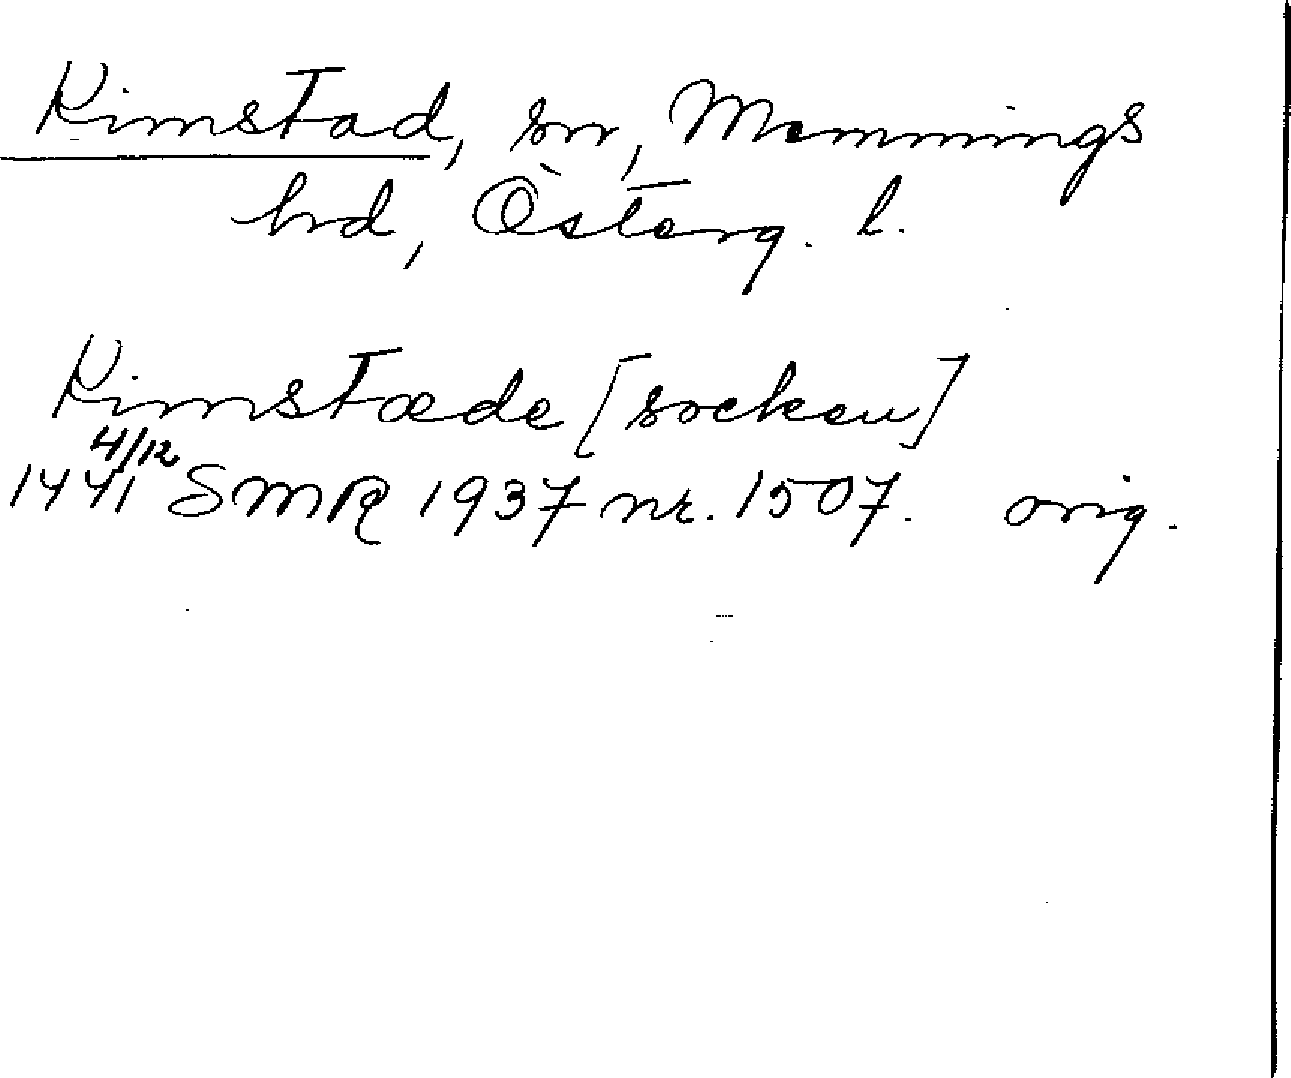 Kimstad, sn, Memmings
hd, Österg. l.
Kimstæde [socken]
1441 4/12 SMR 1937 nr. 1507. orig.